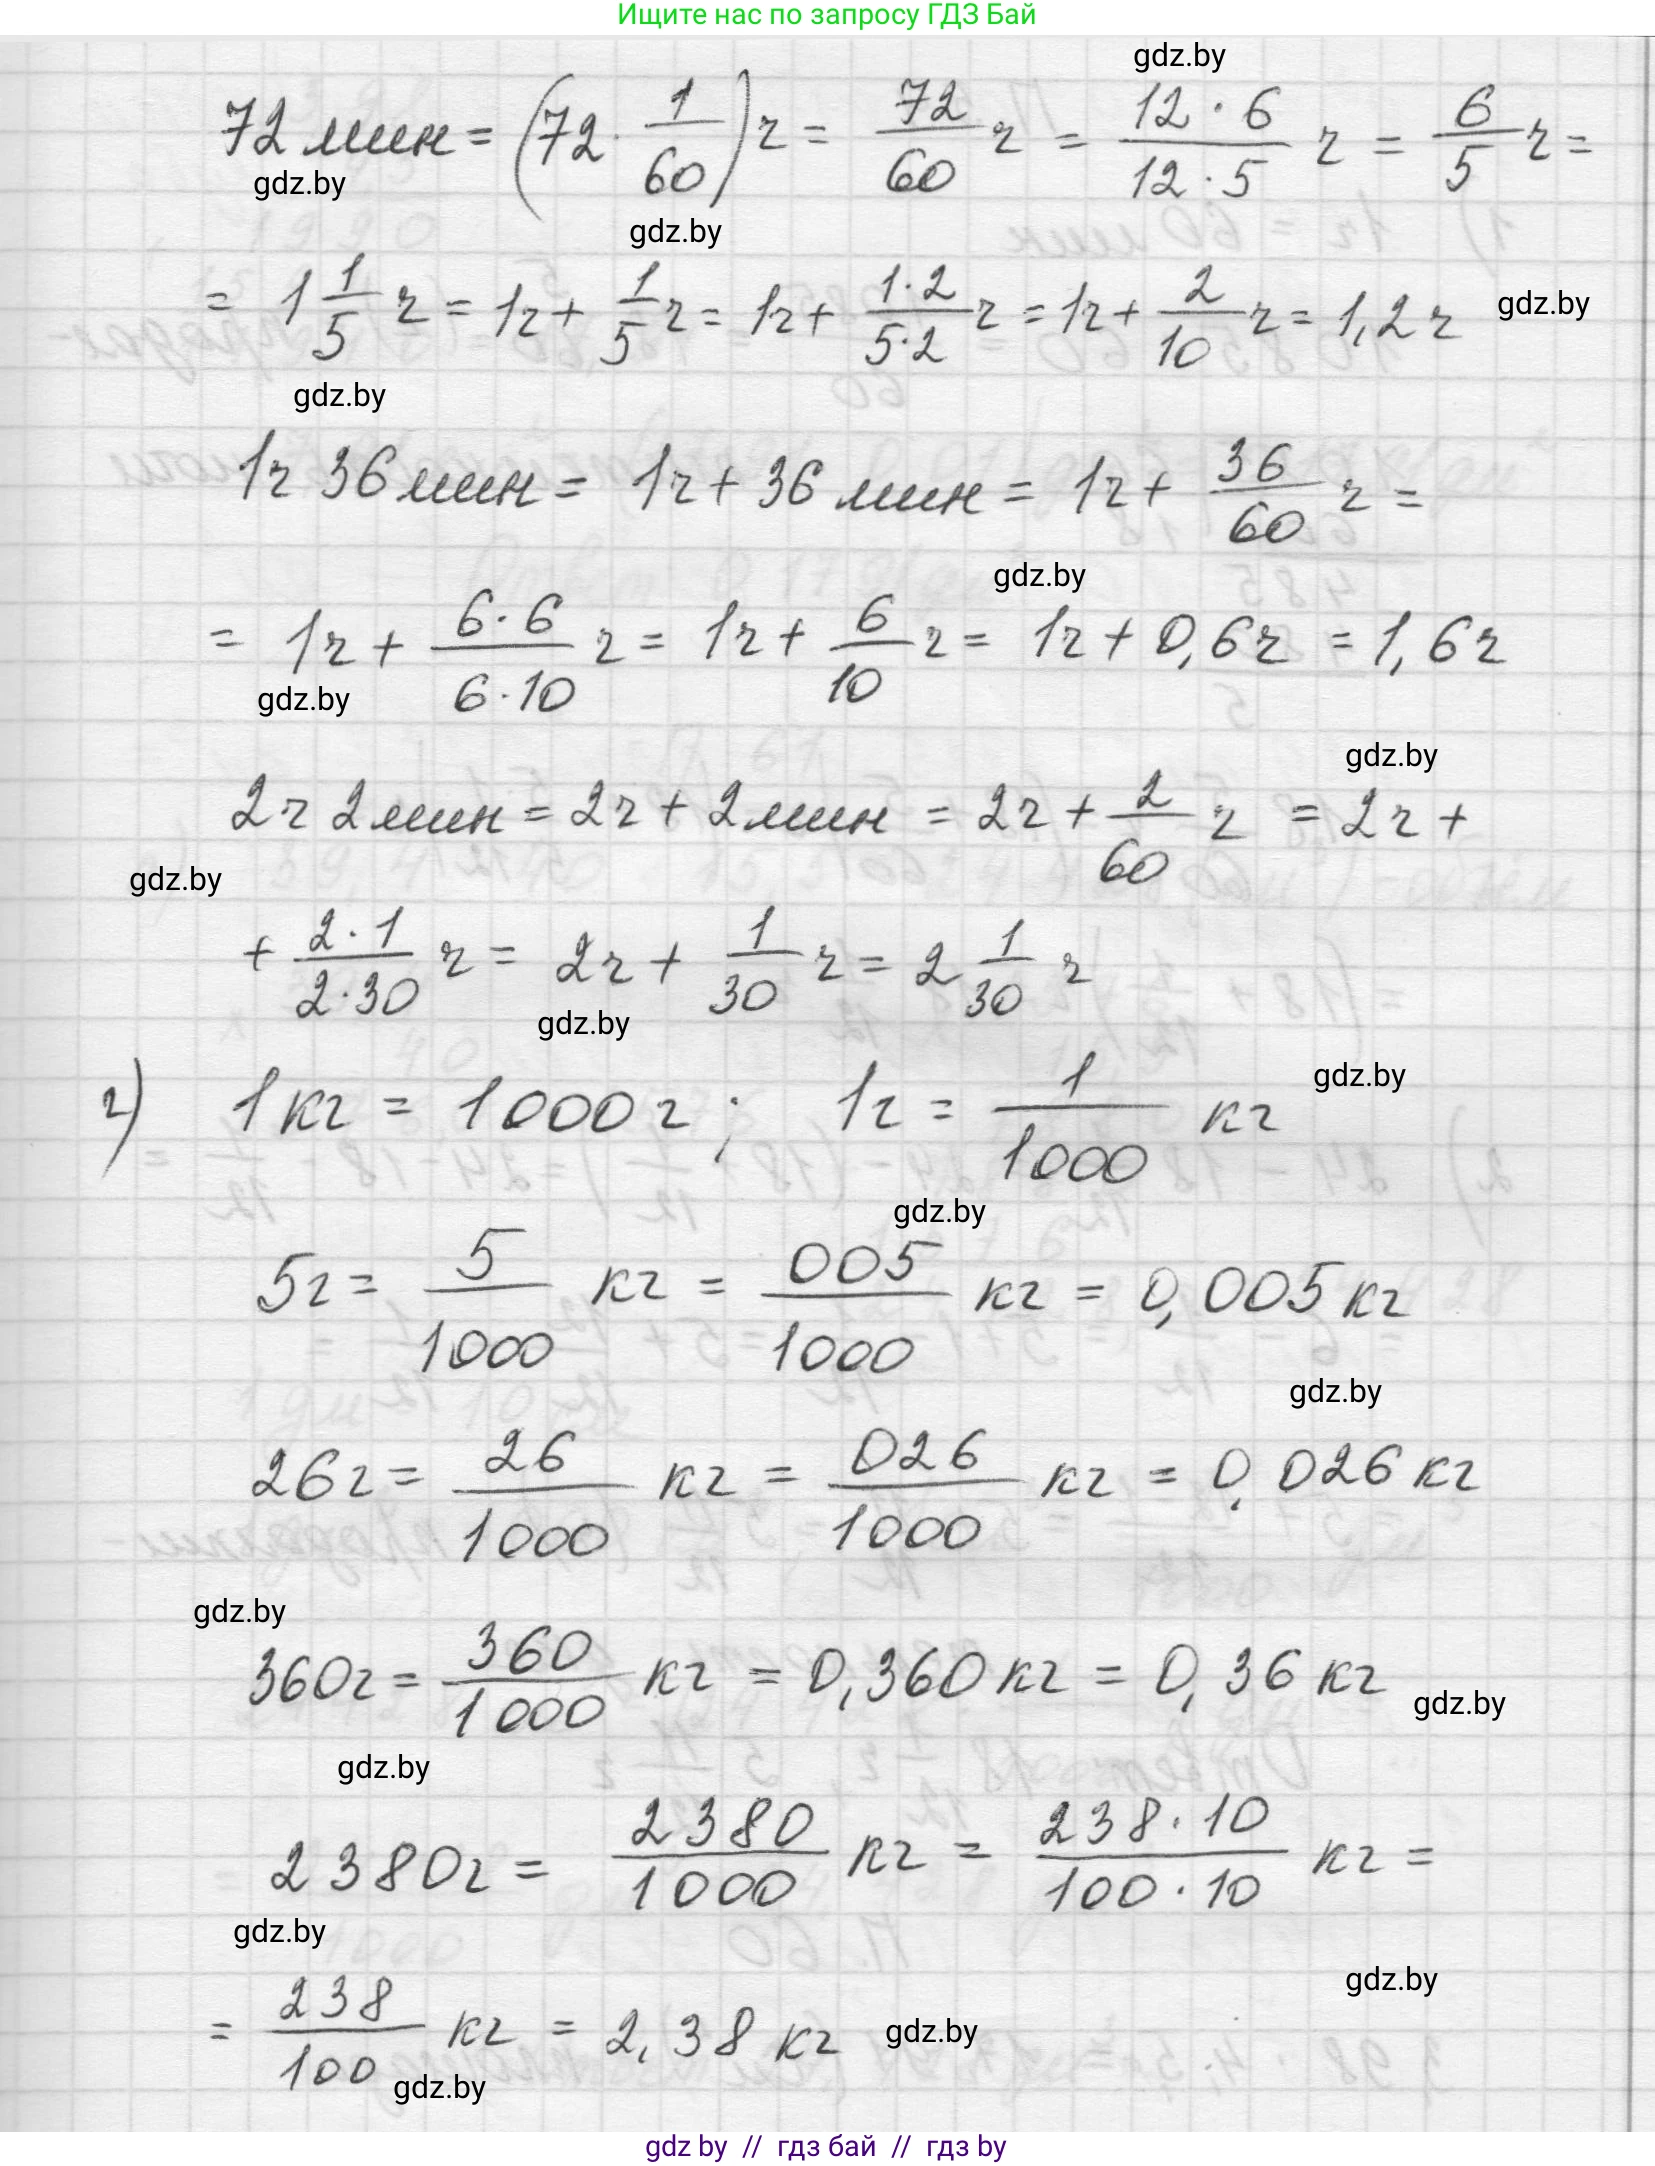 Ищите нас по запросу ГДЗ Бай
gdz.by
72 мин = (72 · 1/60) ч = 72/60 ч = 12 · 6/12 · 5 ч = 6/5 ч =
gdz.by
gdz.by
= 1 1/5 ч = 1ч + 1/5 ч = 1ч + 1·2/5·2 ч = 1ч + 2/10 ч = 1,2 ч
gdz.by
gdz.by
1ч 36 мин = 1ч + 36 мин = 1ч + 36/60 ч =
gdz.by
= 1ч + 6·6/6·10 ч = 1ч + 6/10 ч = 1ч + 0,6ч = 1,6ч
gdz.by
gdz.by
2ч 2мин = 2ч + 2мин = 2ч + 2/60 ч = 2ч +
gdz.by
+ 2·1/2·30 ч = 2ч + 1/30 ч = 2 1/30 ч
gdz.by
г) 1кг = 1000г ; 1г = 1/1000 кг
gdz.by
gdz.by
5г = 5/1000 кг = 005/1000 кг = 0,005 кг
gdz.by
26г = 26/1000 кг = 026/1000 кг = 0,026 кг
gdz.by
360г = 360/1000 кг = 0,360 кг = 0,36 кг
gdz.by
gdz.by
2380г = 2380/1000 кг = 238·10/100·10 кг =
gdz.by
gdz.by
= 238/100 кг = 2,38 кг
gdz.by
gdz.by
gdz by // гдз бай // гдз by